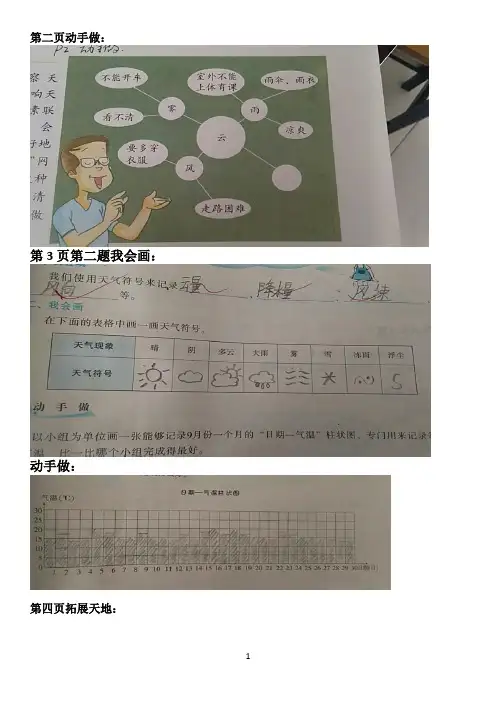 第二页动手做：
P2 动手做.
察 天
响天
素联
会
好地
”网
种
清
做
不能开车
室外不能
上体育课
雨伞、雨衣
雾
雨
看不清
云
凉爽
要多穿
衣服
风
走路困难
第 3 页第二题我会画：
我们使用天气符号来记录云量、降水量、风速、
风向等。
二、我会画
在下面的表格中画一画天气符号。
天气现象 晴 阴 多云 大雨 雾 雪 冻雨 浮尘
天气符号
动 手 做
以小组为单位画一张能够记录9月份一个月的“日期—气温”柱状图，专门用来记录
温 比一比哪个小组完成得最好。
动手做：
日期—气温柱状图
气温(℃)
30
25
20
15
10
5
0
1 2 3 4 5 6 7 8 9 10 11 12 13 14 15 16 17 18 19 20 21 22 23 24 25 26 27 28 29 30日期(日)
第四页拓展天地：
1